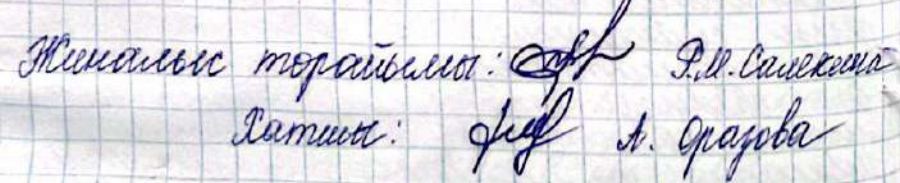 Жиналыс торайымы: Р.М. Салекеша
Хатшы: А. Оразова